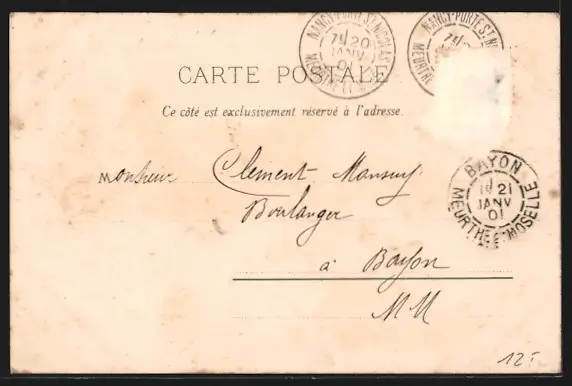 NANCY-PORTE ST NICOLAS
7E 20
JANV
01
MEURTHE ET M
NANCY-PORTE ST NI
7E
MEURTHE
CARTE POSTALE
Ce côté est exclusivement réservé à l'adresse.
BAYON
1E 21
JANV
01
MEURTHE-ET-MOSELLE
Monsieur Clement Mansuy
Boulanger
à Bayon
M M
12-